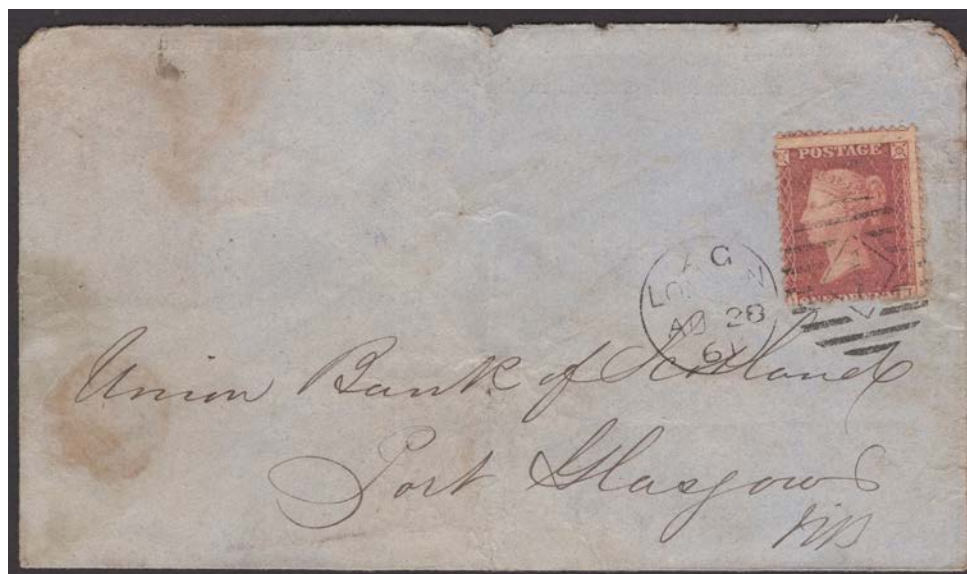 POSTAGE
A G
LONDON
28
61
Union Bank of Scotland
Port Glasgow
NB